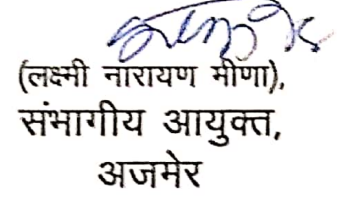 (लक्ष्मी नारायण मीणा),
संभागीय आयुक्त,
अजमेर